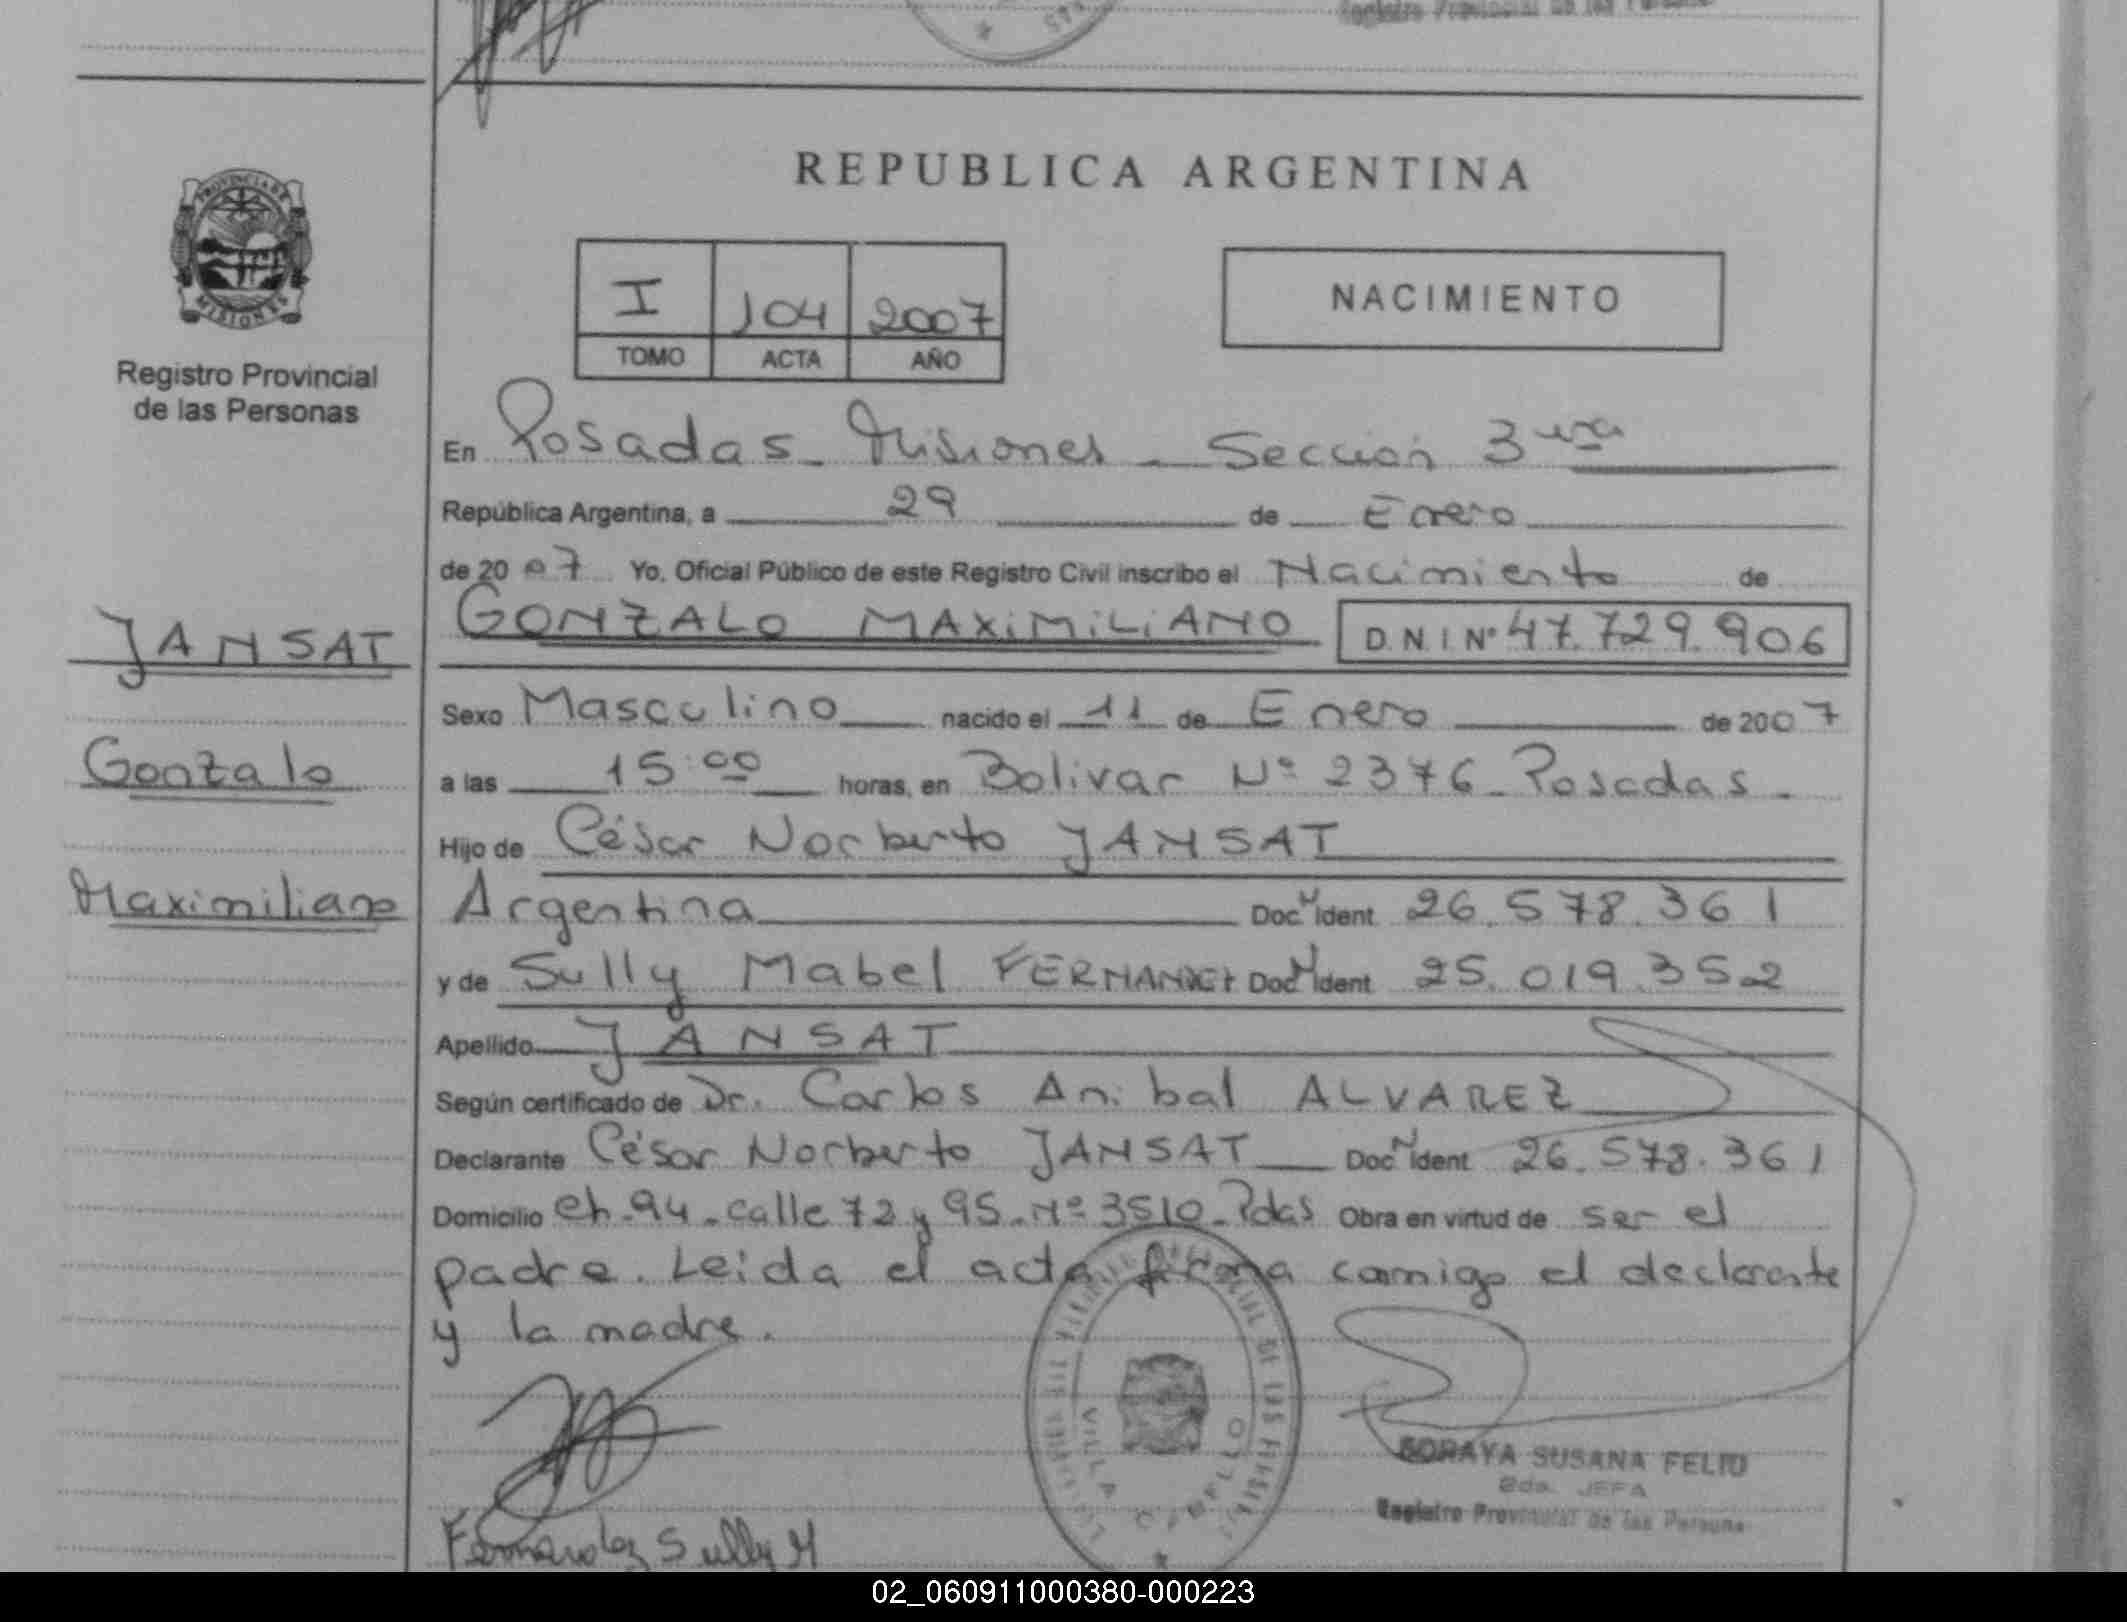 Registro Provincial de las Persona
REPUBLICA ARGENTINA
PROVINCIA DE
MISIONES
Registro Provincial
de las Personas
I 104 2007
TOMO ACTA AÑO
NACIMIENTO
En Posadas - Misiones - Sección 3era
República Argentina, a 29 de Enero
de 2007 Yo, Oficial Público de este Registro Civil inscribo el Nacimiento de
GONZALO MAXIMILIANO D.N.I Nº 47.729.906
JANSAT
Gonzalo
Maximiliano
Sexo Masculino nacido el 11 de Enero de 2007
a las 15:00 horas, en Bolivar Nº 2376 - Posadas -
Hijo de César Norberto JANSAT
Argentina Doc. Ident. 26.578.361
y de Sully Mabel FERNANDEZ Doc. Ident. 25.019.352
Apellido JANSAT
Según certificado de Dr. Carlos Anibal ALVAREZ
Declarante César Norberto JANSAT Doc. Ident 26.578.361
Domicilio Ch. 94 - calle 72 y 95 - Nº 3510 - Pdas Obra en virtud de ser el
padre. Leida el acta firma conmigo el declarante
y la madre.
VILLA CABELLO
SORAYA SUSANA FELIU
2da. JEFA
Registro Provincial de las Persona
Fernandez Sully M
02_060911000380-000223